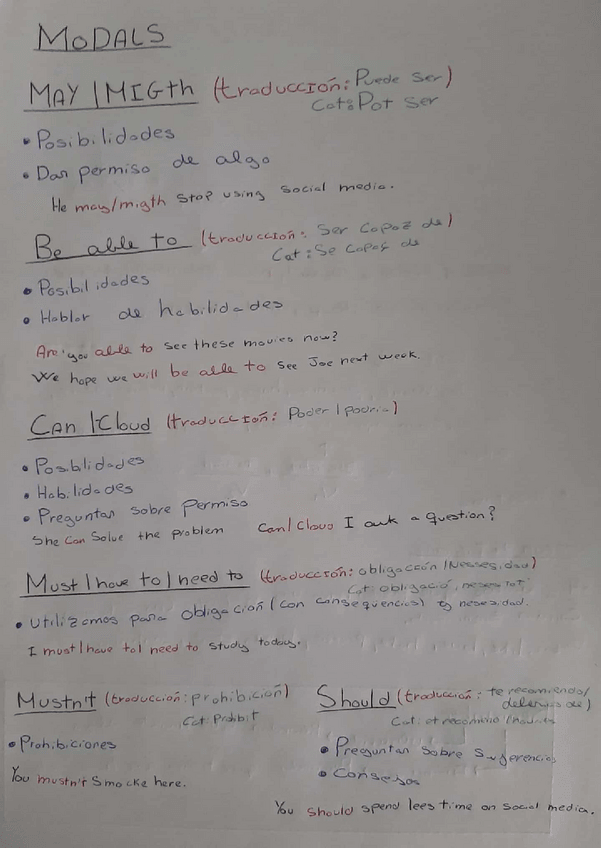 MODALS
MAY/MIGth (traducción: Puede ser)
Cat: Pot ser
• Posibilidades
• Dan permiso de algo
He may/migth stop using social media.
Be able to (traducción: Ser capaz de)
Cat: Se capaç de
• Posibilidades
• Hablar de habilidades
Are you able to see these movies now?
We hope we will be able to see Joe next week.
Can/Cloud (traducción: Poder/podria)
• Posiblidades
• Habilidades
• Preguntan sobre Permiso
She can solve the problem Can/Cloud I a question?
Must/have to/need to (traducción: obligacción/Nessesidad)
Cat: obligació,
• utilizamos para obligación (con consequencias) nesesidad.
I must/have to/need to study today.
Mustn't (traducción: prohibición)
Cat: Prohibit
• Prohibiciones
You mustn't Smocke here.
Should (traducción: te recomiendo/
deberias de)
Cat:
• Preguntan sobre Sugerencias
• Consejos
You should spend lees time on social media.